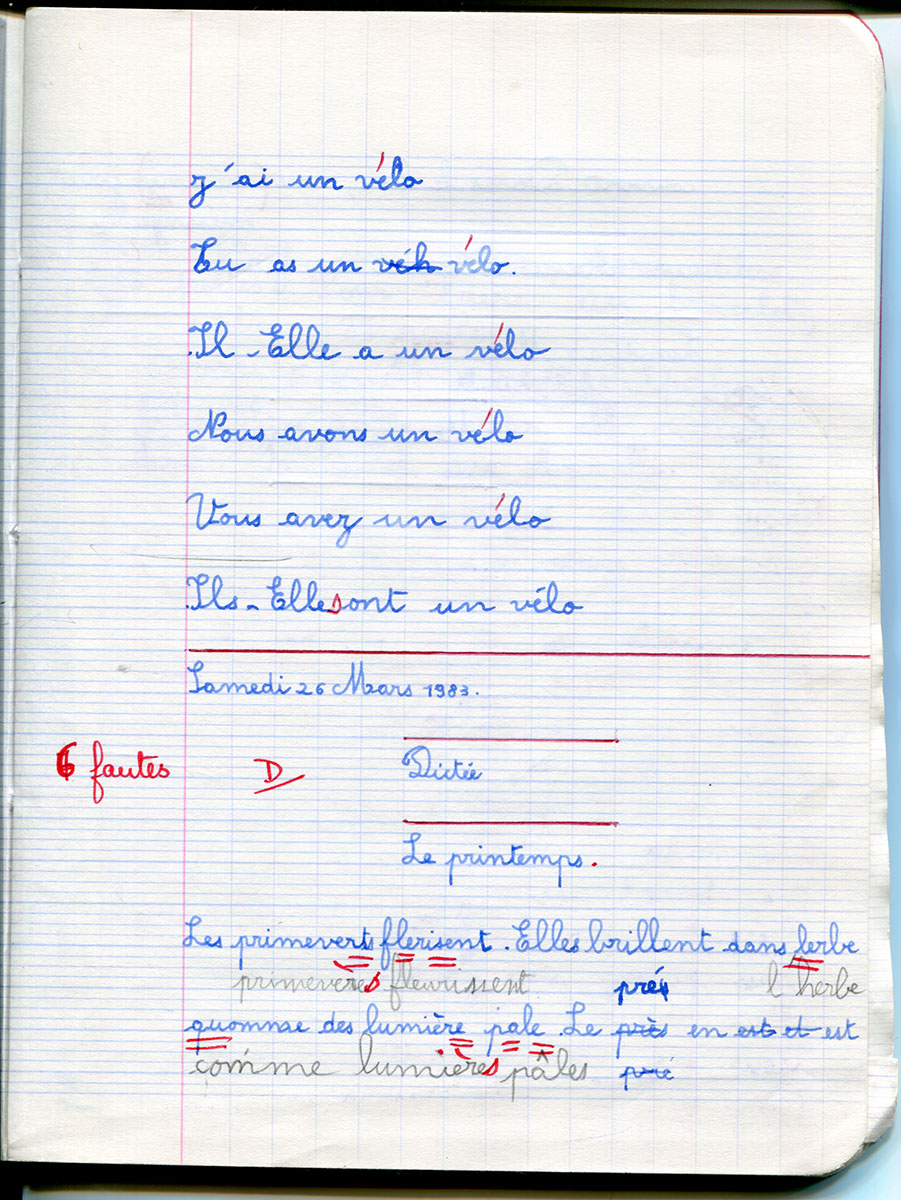 J'ai un vélo
Tu as un véh vélo.
Il - Elle a un vélo
Nous avons un vélo
Vous avez un vélo
Ils - Elles ont un vélo
Samedi 26 Mars 1983.
6 fautes D Dictée
Le printemps.
Les primeverts flerisent. Elles brillent dans lerbe
primevères fleurissent prés l'herbe
quomnae des lumière pale. Le près en est et est
comme lumières pâles pré